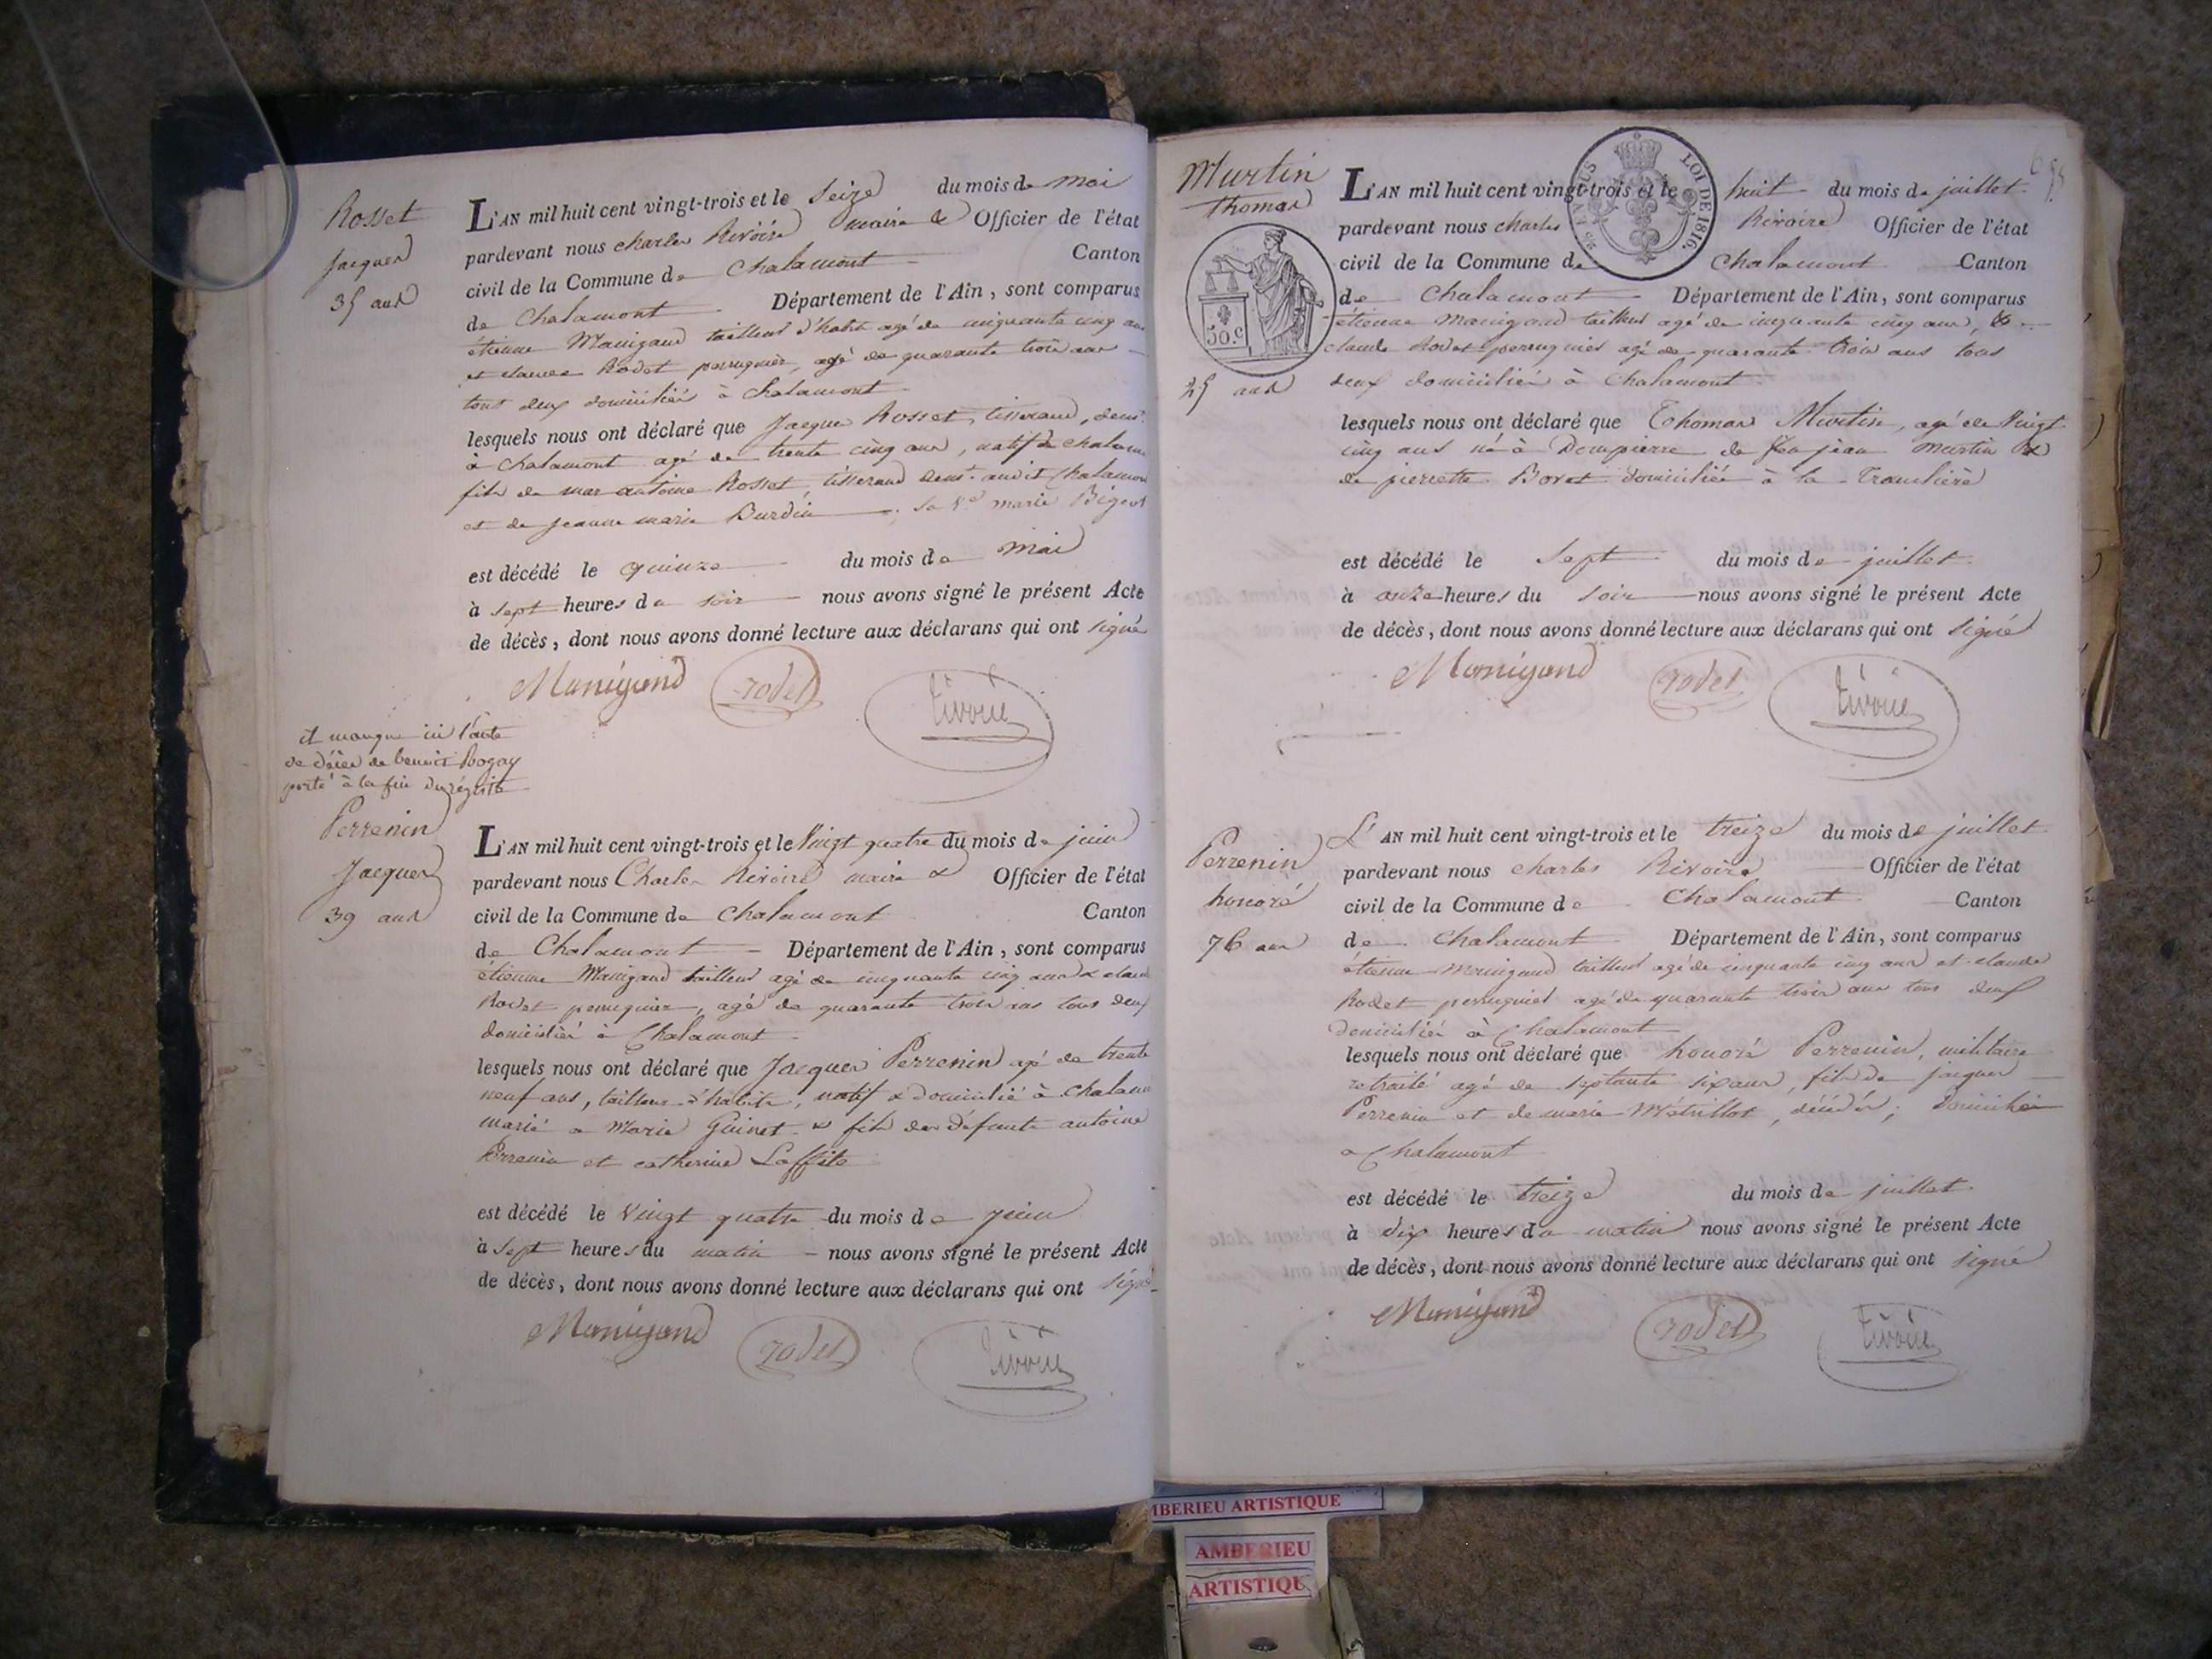 Rosset
Jacques
35 ans
L'AN mil huit cent vingt-trois et le Seize du mois de mai
pardevant nous charles Rivoire maire & Officier de l'état
civil de la Commune de Chalamont Canton
de Chalamont Département de l'Ain, sont comparus
étienne Manigand tailleur d'habit agé de cinquante cinq ans
et claude Rodet perruquier, agé de quarante trois ans
tous deux domiciliés à Chalamont
lesquels nous ont déclaré que Jacques Rosset, tisserand, demt
à chalamont agé de trente cinq ans, natif de chalam
fils de marc antoine Rosset, tisserand demt audit Chalamon
et de jeanne marie Burdin marie Bigeot
est décédé le quinze du mois de mai
à sept heures du soir nous avons signé le présent Acte
de décès, dont nous avons donné lecture aux déclarans qui ont signé
Manigand rodet rivoire
il manque ici l'acte
de décès de benoit Bogay
porté à la fin du régistre
Perrenin
Jacques
39 ans
L'AN mil huit cent vingt-trois et le Vingt quatre du mois de juin
pardevant nous Charles Rivoire maire & Officier de l'état
civil de la Commune de Chalamont Canton
de Chalamont Département de l'Ain, sont comparus
étienne Manigand tailleur agé de cinquante cinq ans & claud
Rodet perruquier, agé de quarante trois ans tous deux
domiciliés à Chalamont
lesquels nous ont déclaré que Jacques Perrenin agé de trente
neuf ans, tailleur d'habits, natif & domicilié à chalam
marié a Marie Guinet & fils des défunts antoine
Perrenin et catherine Laffite
est décédé le Vingt quatre du mois de juin
à sept heures du matin nous avons signé le présent Acte
de décès, dont nous avons donné lecture aux déclarans qui ont signé
Manigand rodet rivoire
Murtin
Thomas
50 c
25 ans
LOI DE 1816.
L'AN mil huit cent vingt-trois et le huit du mois de juillet
pardevant nous charles Rivoire Officier de l'état
civil de la Commune de Chalamont Canton
de Chalamont Département de l'Ain, sont comparus
étienne Manigand tailleur agé de cinquante cinq ans, &
claude Rodet perruquier agé de quarante trois ans tous
deux domiciliés à Chalamont
lesquels nous ont déclaré que Thomas Murtin, agé de Vingt
cinq ans né à Dompierre de feu jean Murtin &
de pierrette Boret domiciliée à la Tranclière
est décédé le sept du mois de juillet
à onze heures du soir nous avons signé le présent Acte
de décès, dont nous avons donné lecture aux déclarans qui ont signé
Manigand rodet rivoire
Perrenin
honoré
76 ans
L'AN mil huit cent vingt-trois et le treize du mois de juillet
pardevant nous charles Rivoire Officier de l'état
civil de la Commune de Chalamont Canton
de Chalamont Département de l'Ain, sont comparus
étienne Manigand tailleur agé de cinquante cinq ans et claude
Rodet perruquier agé de quarante trois ans tous deux
domiciliés à Chalamont
lesquels nous ont déclaré que honoré Perrenin, militaire
retraité agé de septante six ans, fils de jacques
Perrenin et de marie Métrillot, décédés, domicilié
a Chalamont
est décédé le treize du mois de juillet
à dix heures du matin nous avons signé le présent Acte
de décès, dont nous avons donné lecture aux déclarans qui ont signé
Manigand rodet rivoire
MBERIEU ARTISTIQUE
AMBERIEU
ARTISTIQU